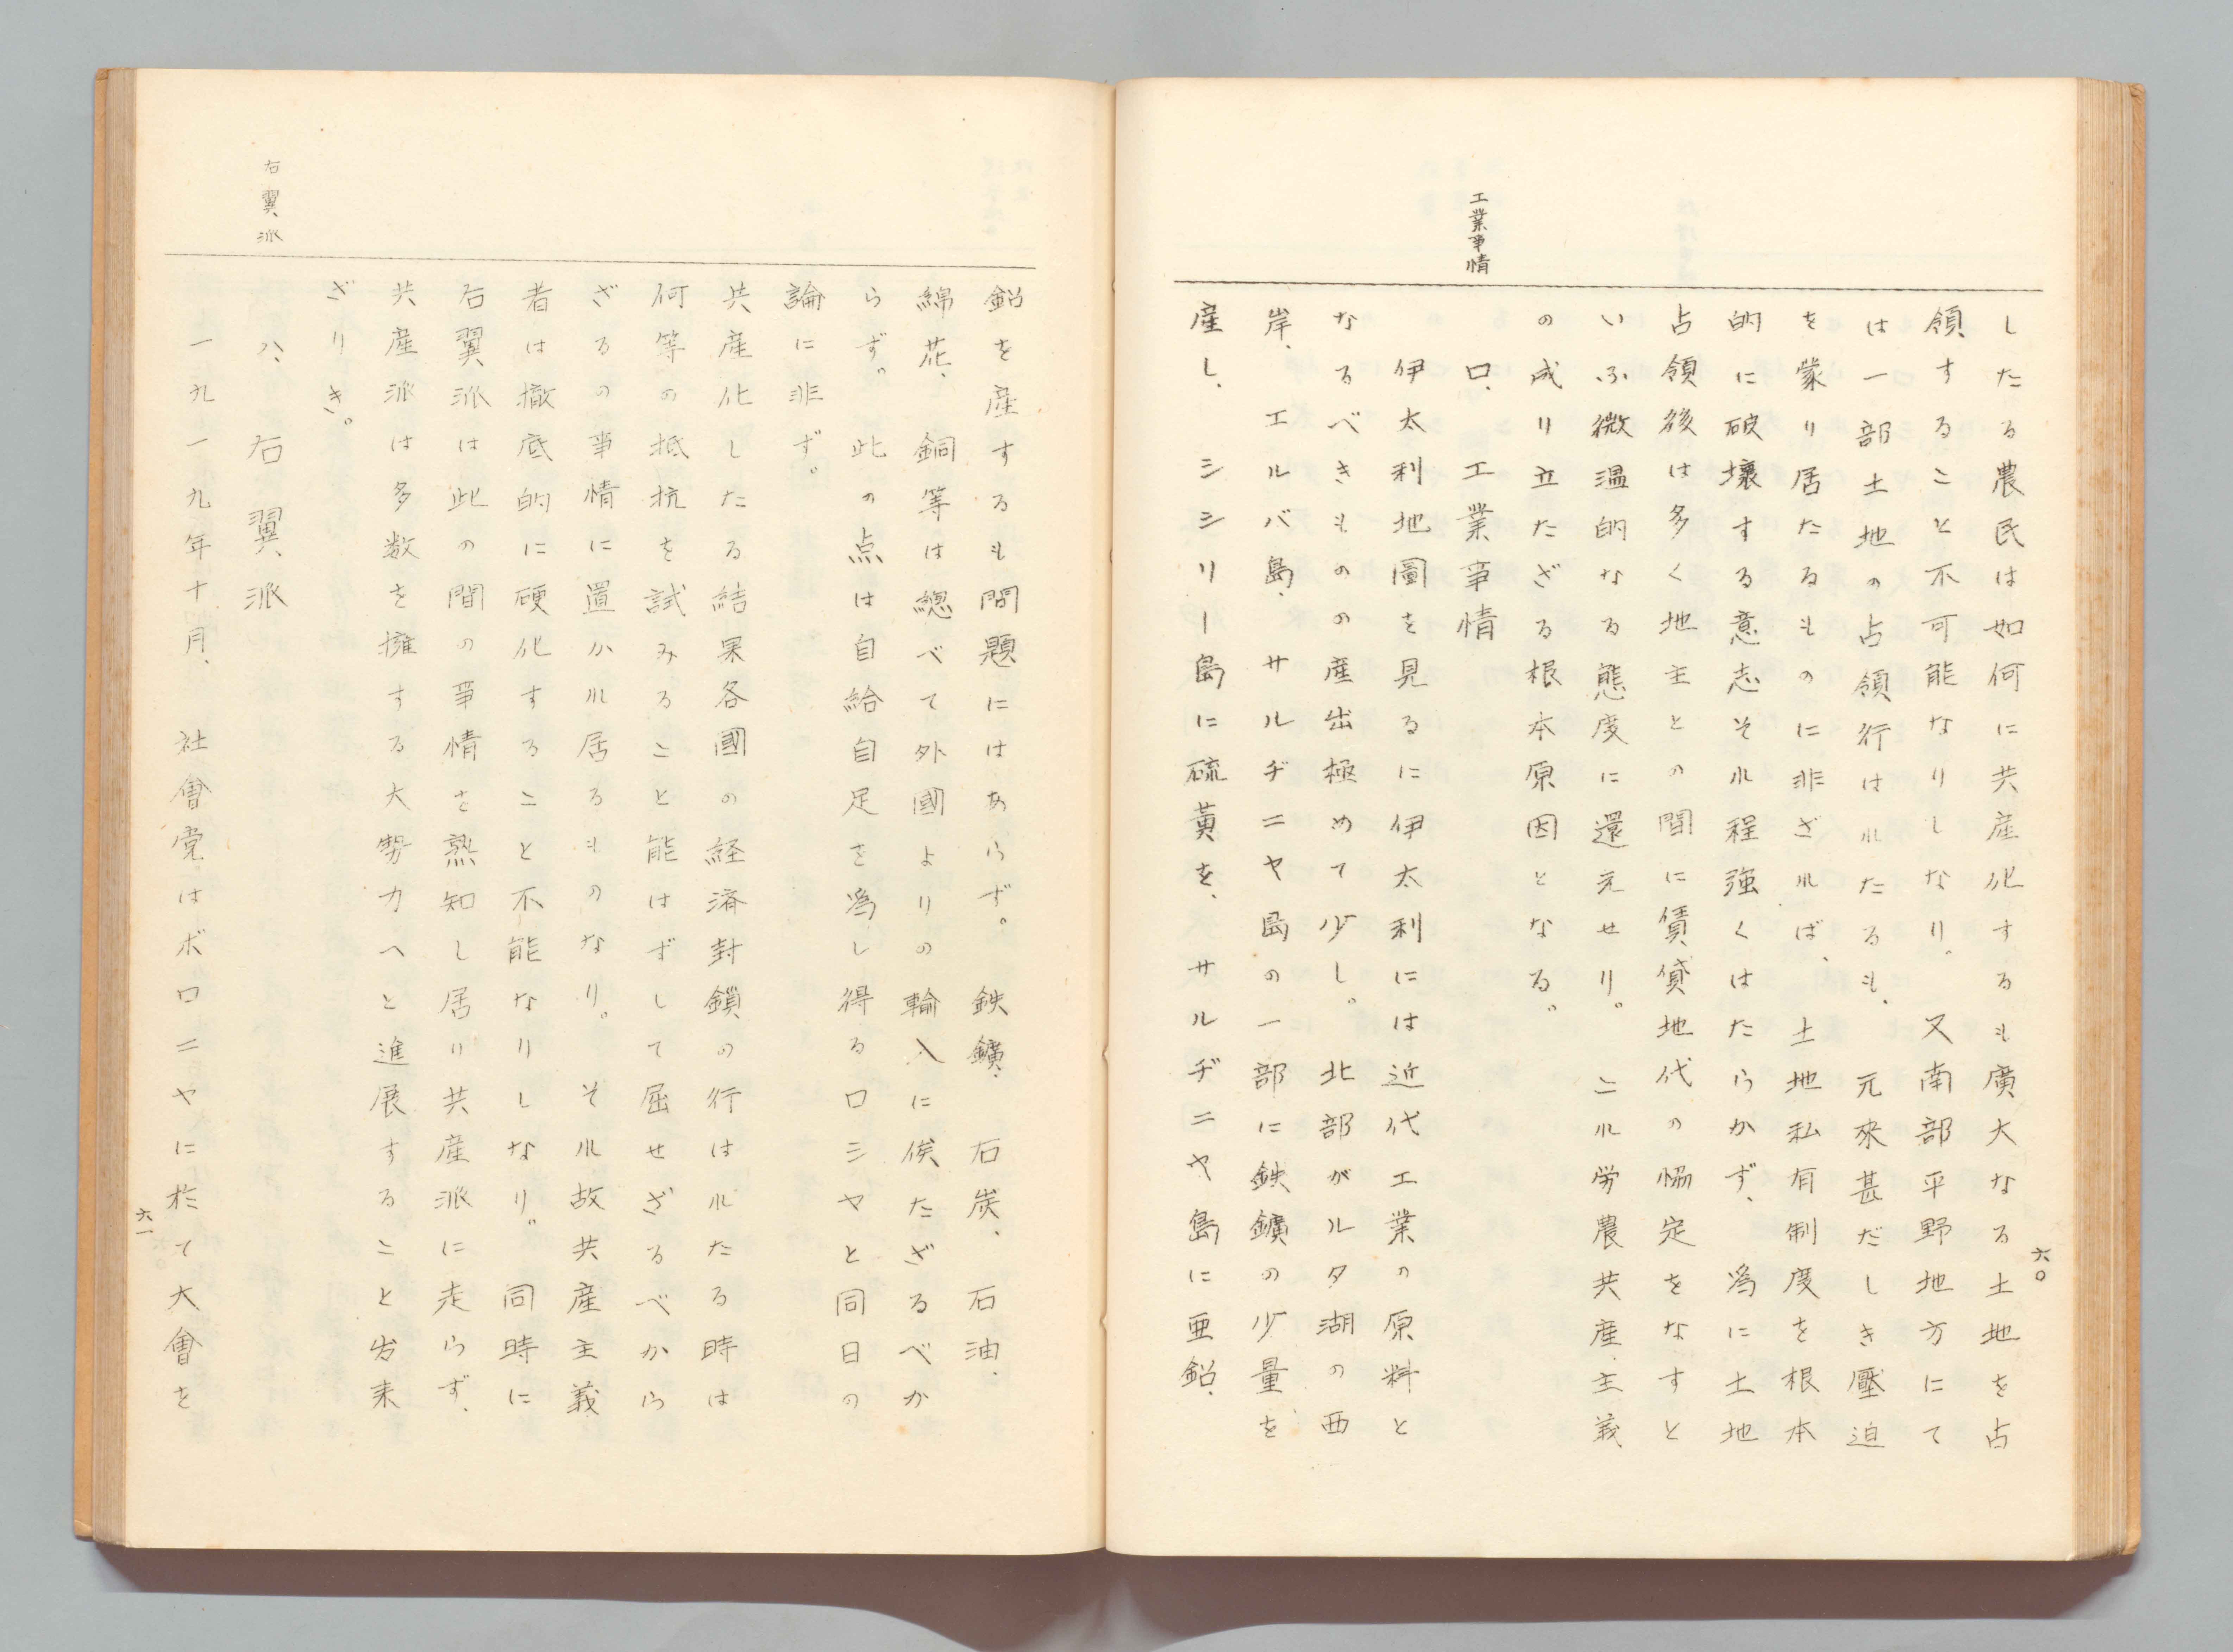 六〇
したる農民は如何に共産化するも廣大なる土地を占
領すること不可能なりしなり。又南部平野地方にて
は一部土地の占領行はれたるも、元來甚だしき壓迫
を蒙り居たるものに非ざれば、土地私有制度を根本
的に破壞する意志それ程強くはたらかず、爲に土地
占領後は多く地主との間に賃貸地代の協定をなすと
いふ微温的なる態度に還元せり。これ労農共産主義
の成り立たざる根本原因となる。
工業事情
ロ、工業事情
伊太利地圖を見るに伊太利には近代工業の原料と
なるべきものの産出極めて少し。北部ガルタ湖の西
岸、エルバ島、サルヂニヤ島の一部に鉄鑛の少量を
産し、シシリー島に硫黄を、サルヂニヤ島に亜鉛、
鉛を産するも問題にはあらず。鉄鑛、石炭、石油、
綿花、銅等は總べて外國よりの輸入に俟たざるべか
らず。此の点は自給自足を爲し得るロシヤと同日の
論に非ず。
共産化したる結果各國の経済封鎖の行はれたる時は
何等の抵抗を試みること能はずして屈せざるべから
ざるの事情に置かれ居るものなり。それ故共産主義
者は撤底的に硬化すること不能なりしなり。同時に
右翼派は此の間の事情を熟知し居り共産派に走らず、
共産派は多数を擁する大勢力へと進展すること出来
ざりき。
右翼派
ハ、右翼派
一九一九年十月、社會党はボロニヤに於て大會を
六一